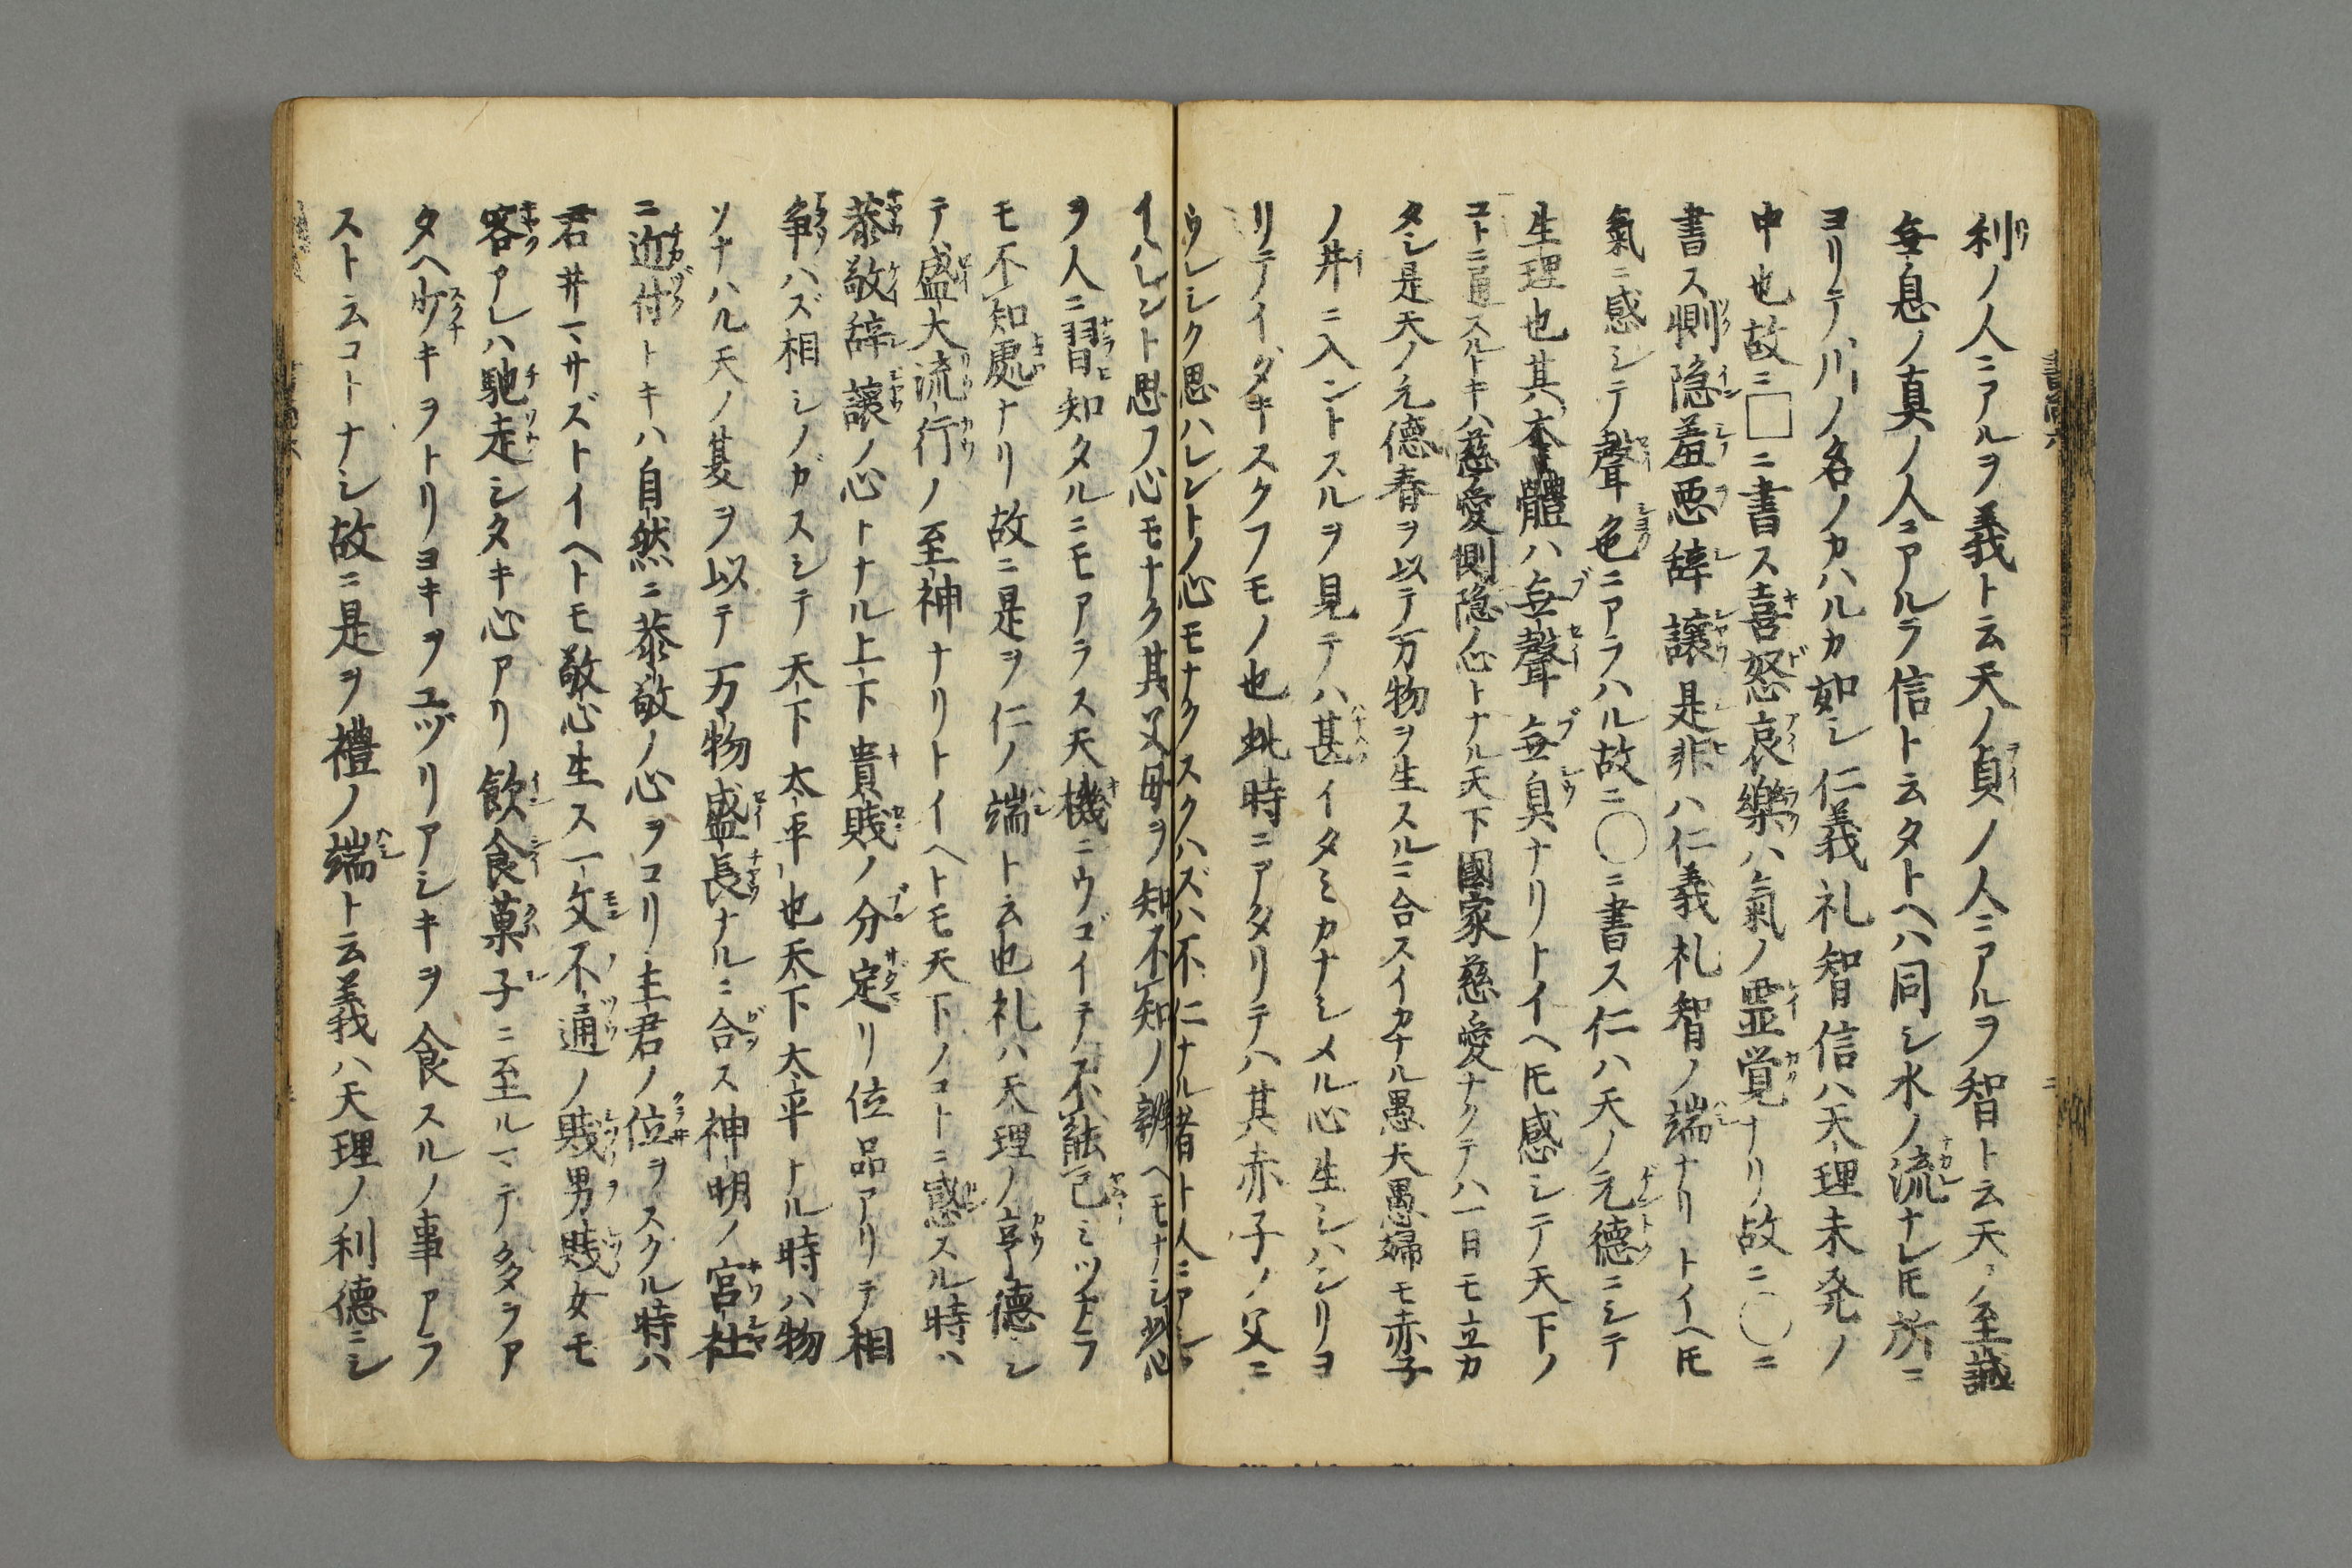 利ノ人ニアルヲ義ト云天ノ貞ノ人ニアルヲ智ト云天ノ至誠
無息ノ真ノ人ニアルヲ信ト云タトヘハ同シ水ノ流ナレ𪜈所ニ
ヨリテ川ノ名ノカハルカ如シ仁義礼智信ハ天理未発ノ
中也故ニ□ニ書ス喜怒哀樂ハ氣ノ霊覚ナリ故ニ○ニ
書ス惻隐羞悪辞讓是非ハ仁義礼智ノ端ナリトイヘ𪜈
氣ニ感シテ聲色ニアラハル故ニ○ニ書ス仁ハ天ノ元德ニシテ
生理也其本體ハ無聲無臭ナリトイヘ𪜈感シテ天下ノ
コトニ通スルトキハ慈愛惻隐ノ心トナル天下國家慈愛ナクテハ一日モ立カ
タシ是天ノ元德春ヲ以テ万物ヲ生スルニ合スイカナル愚夫愚婦モ赤子
ノ井ニ入ントスルヲ見テハ甚イタミカナシメル心生シハシリヨ
リテイダキスクフモノ也此時ニアタリテハ其赤子ノ父ニ
ウレシク思ハレントノ心モナクスクハズハ不仁ナル者ト人ニアシク
イハレント思フ心モナク其父母ヲ知不知ノ辨ヘモナシ此心
ヲ人ニ習知タルニモアラス天機ニウゴイテ不能已ミツカラ
モ不知處ナリ故ニ是ヲ仁ノ端ト云也礼ハ天理ノ亨德シ
テ盛大流行ノ至神ナリトイヘトモ天下ノコトニ感スル時ハ
恭敬辞讓ノ心トナル上下貴賎ノ分定リ位品アリテ相
争ハズ相シノガスシテ天下太平也天下太平トナル時ハ物
ソナハル天ノ夏ヲ以テ万物盛長ナルニ合ス神明ノ宮社
ニ近付トキハ自然ニ恭敬ノ心ヲコリ主君ノ位ヲスクル時ハ
君井マサズトイヘトモ敬心生ス一文不通ノ賎男賎女モ
客アレハ馳走シタキ心アリ飲食菓子ニ至ルマテ多ラア
タヘ少キヲトリヨキヲユヅリアシキヲ食スルノ事アラ
スト云コトナシ故ニ是ヲ禮ノ端ト云義ハ天理ノ利德ニシ